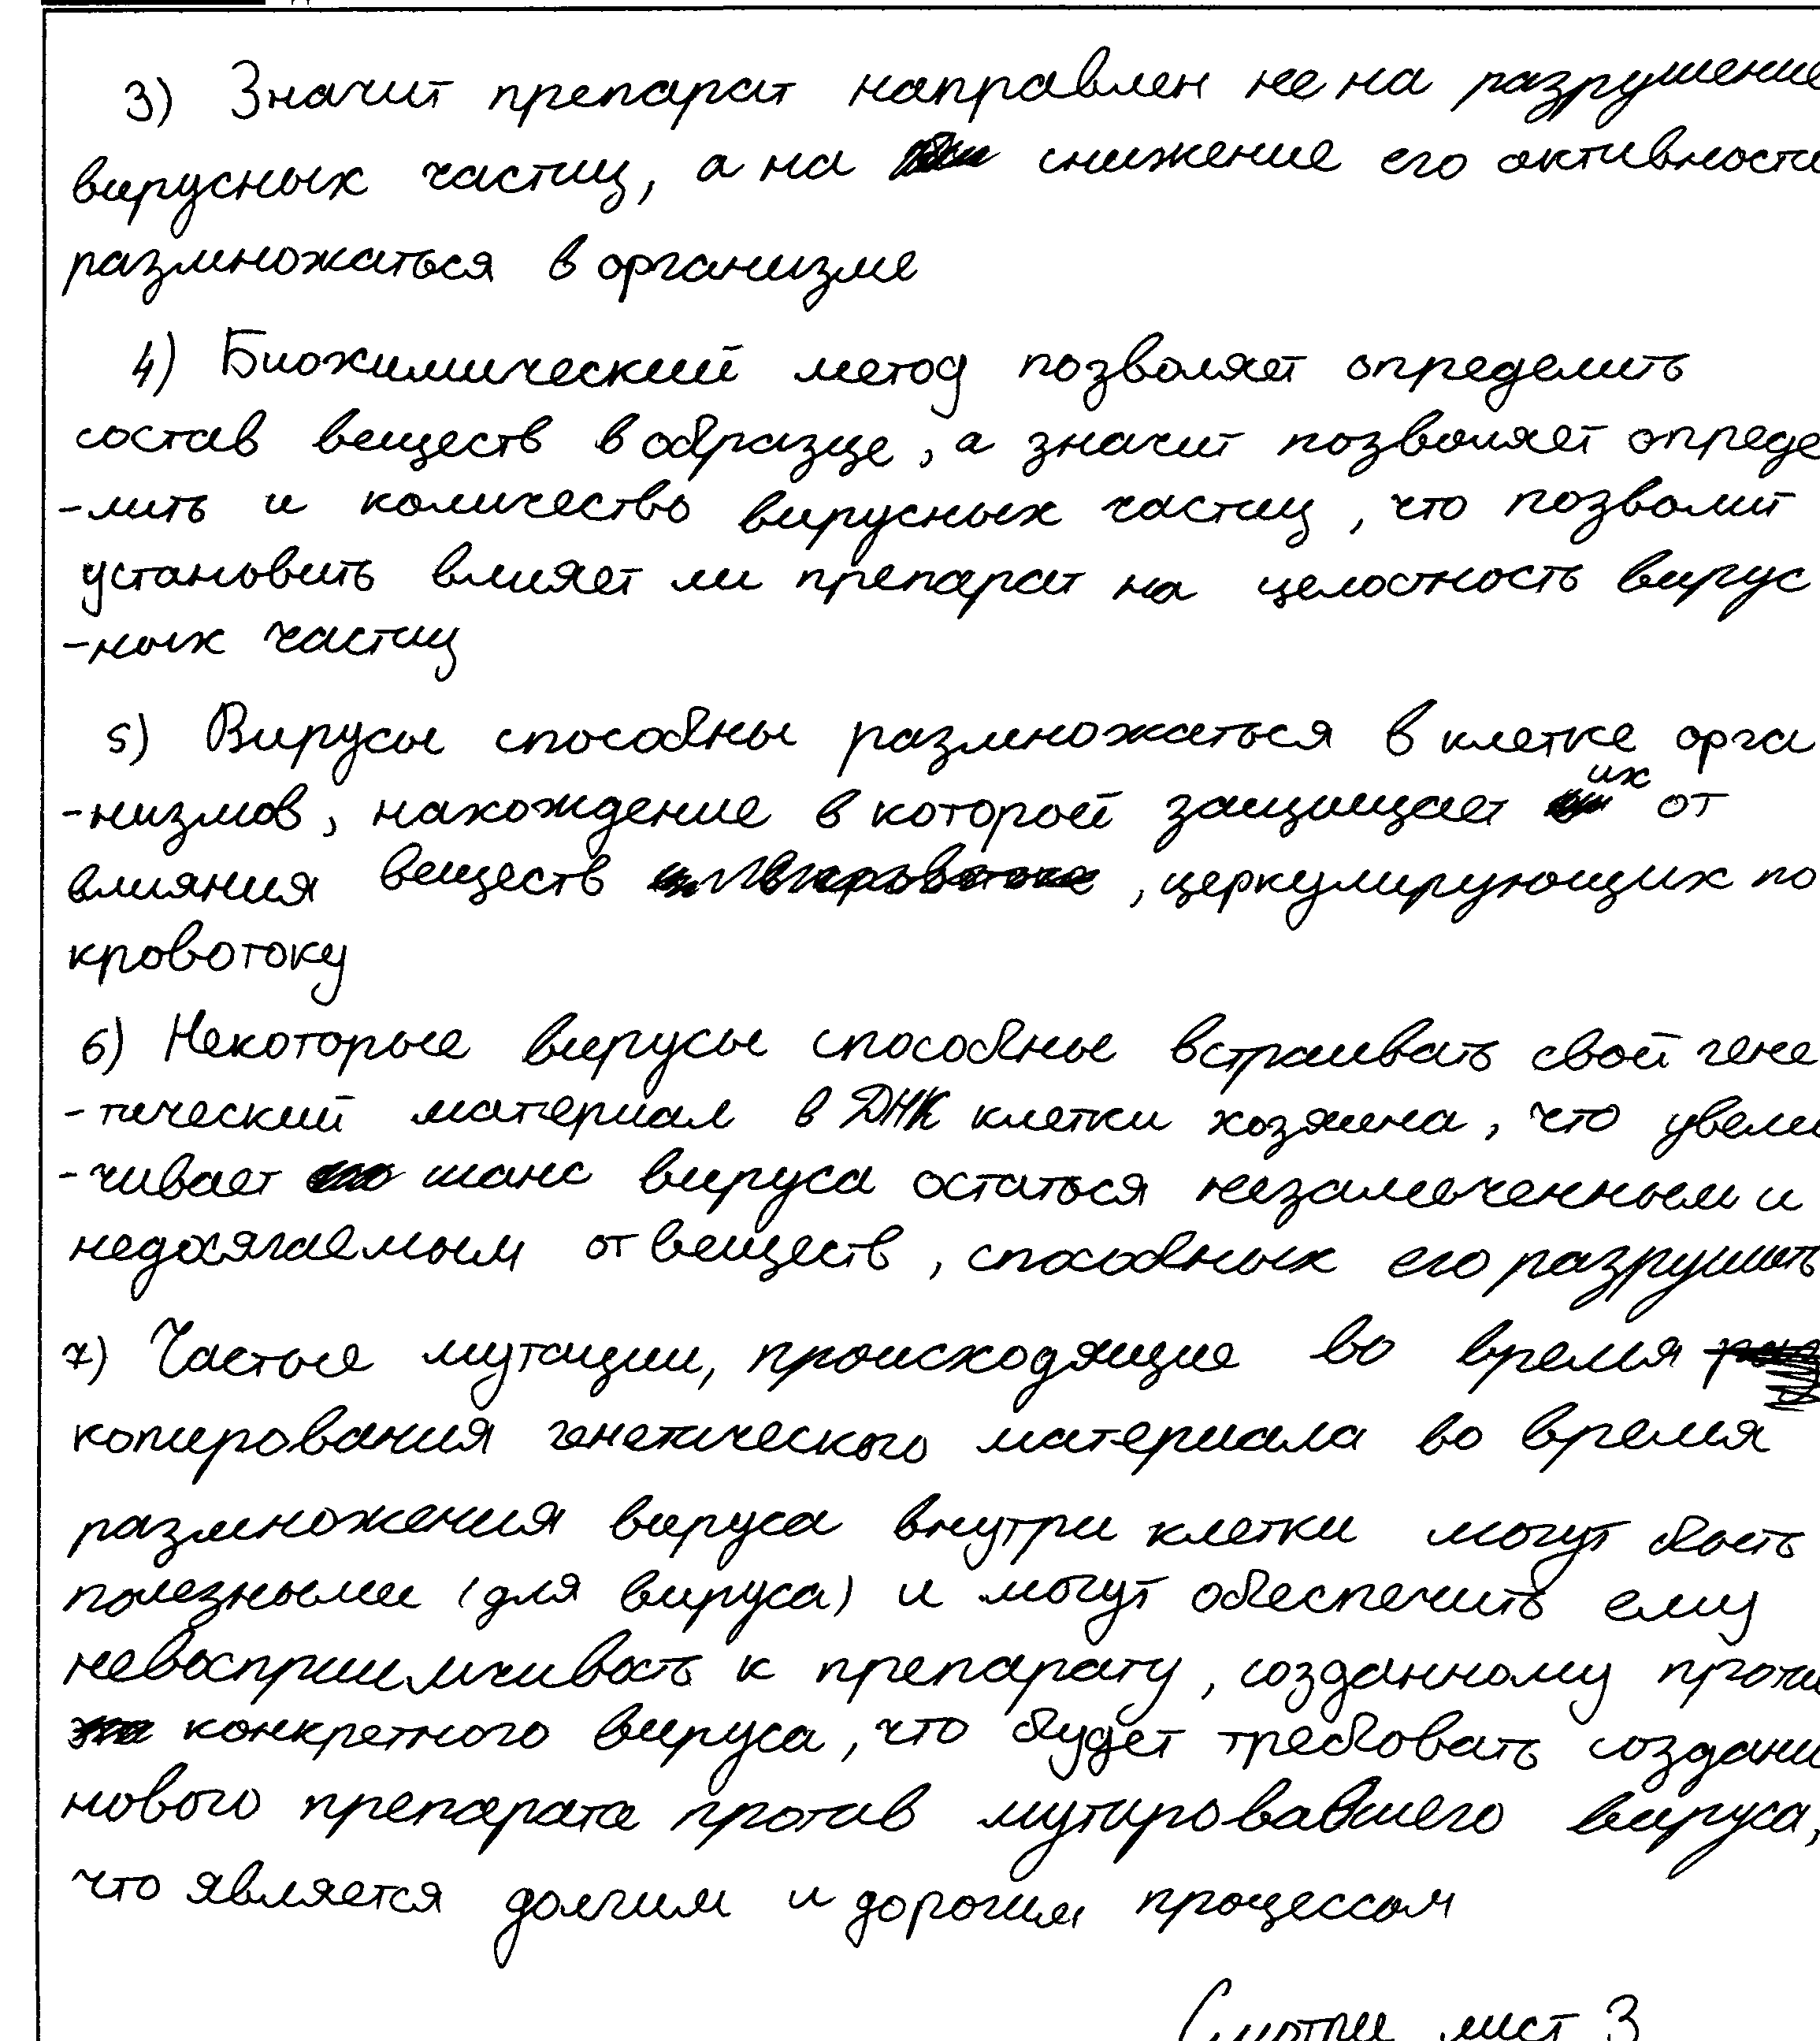 3) Значит препарат направлен не на разрушение
вирусных частиц, а на снижение его активности
размножаться в организме
4) Биохимический метод позволяет определить
состав веществ в образце, а значит позволяет опреде
-лить и количество вирусных частиц, что позволит
установить влияет ли препарат на целостность вирус
-ных частиц
5) Вирусы способны размножаться в клетке орга
-низмов, нахождение в которой защищает их от
влияния веществ , церкулирующих по
кровотоку
6) Некоторые вирусы способные встраивать свой гене
-тический материал в ДНК клетки хозяина, что увели
-чивает шанс вируса остаться незамеченным и
недосягаемым от веществ, способных его разрушить
7) Частые мутации, происходящие во время
копирования генетического материала во время
размножения вируса внутри клетки могут быть
полезными (для вируса) и могут обеспечить ему
невосприимчивость к препарату, созданному проти
конкретного вируса, что будет требовать создани
нового препарата против мутировавшего вируса,
что является долгим и дорогим процессом
Смотри лист 3